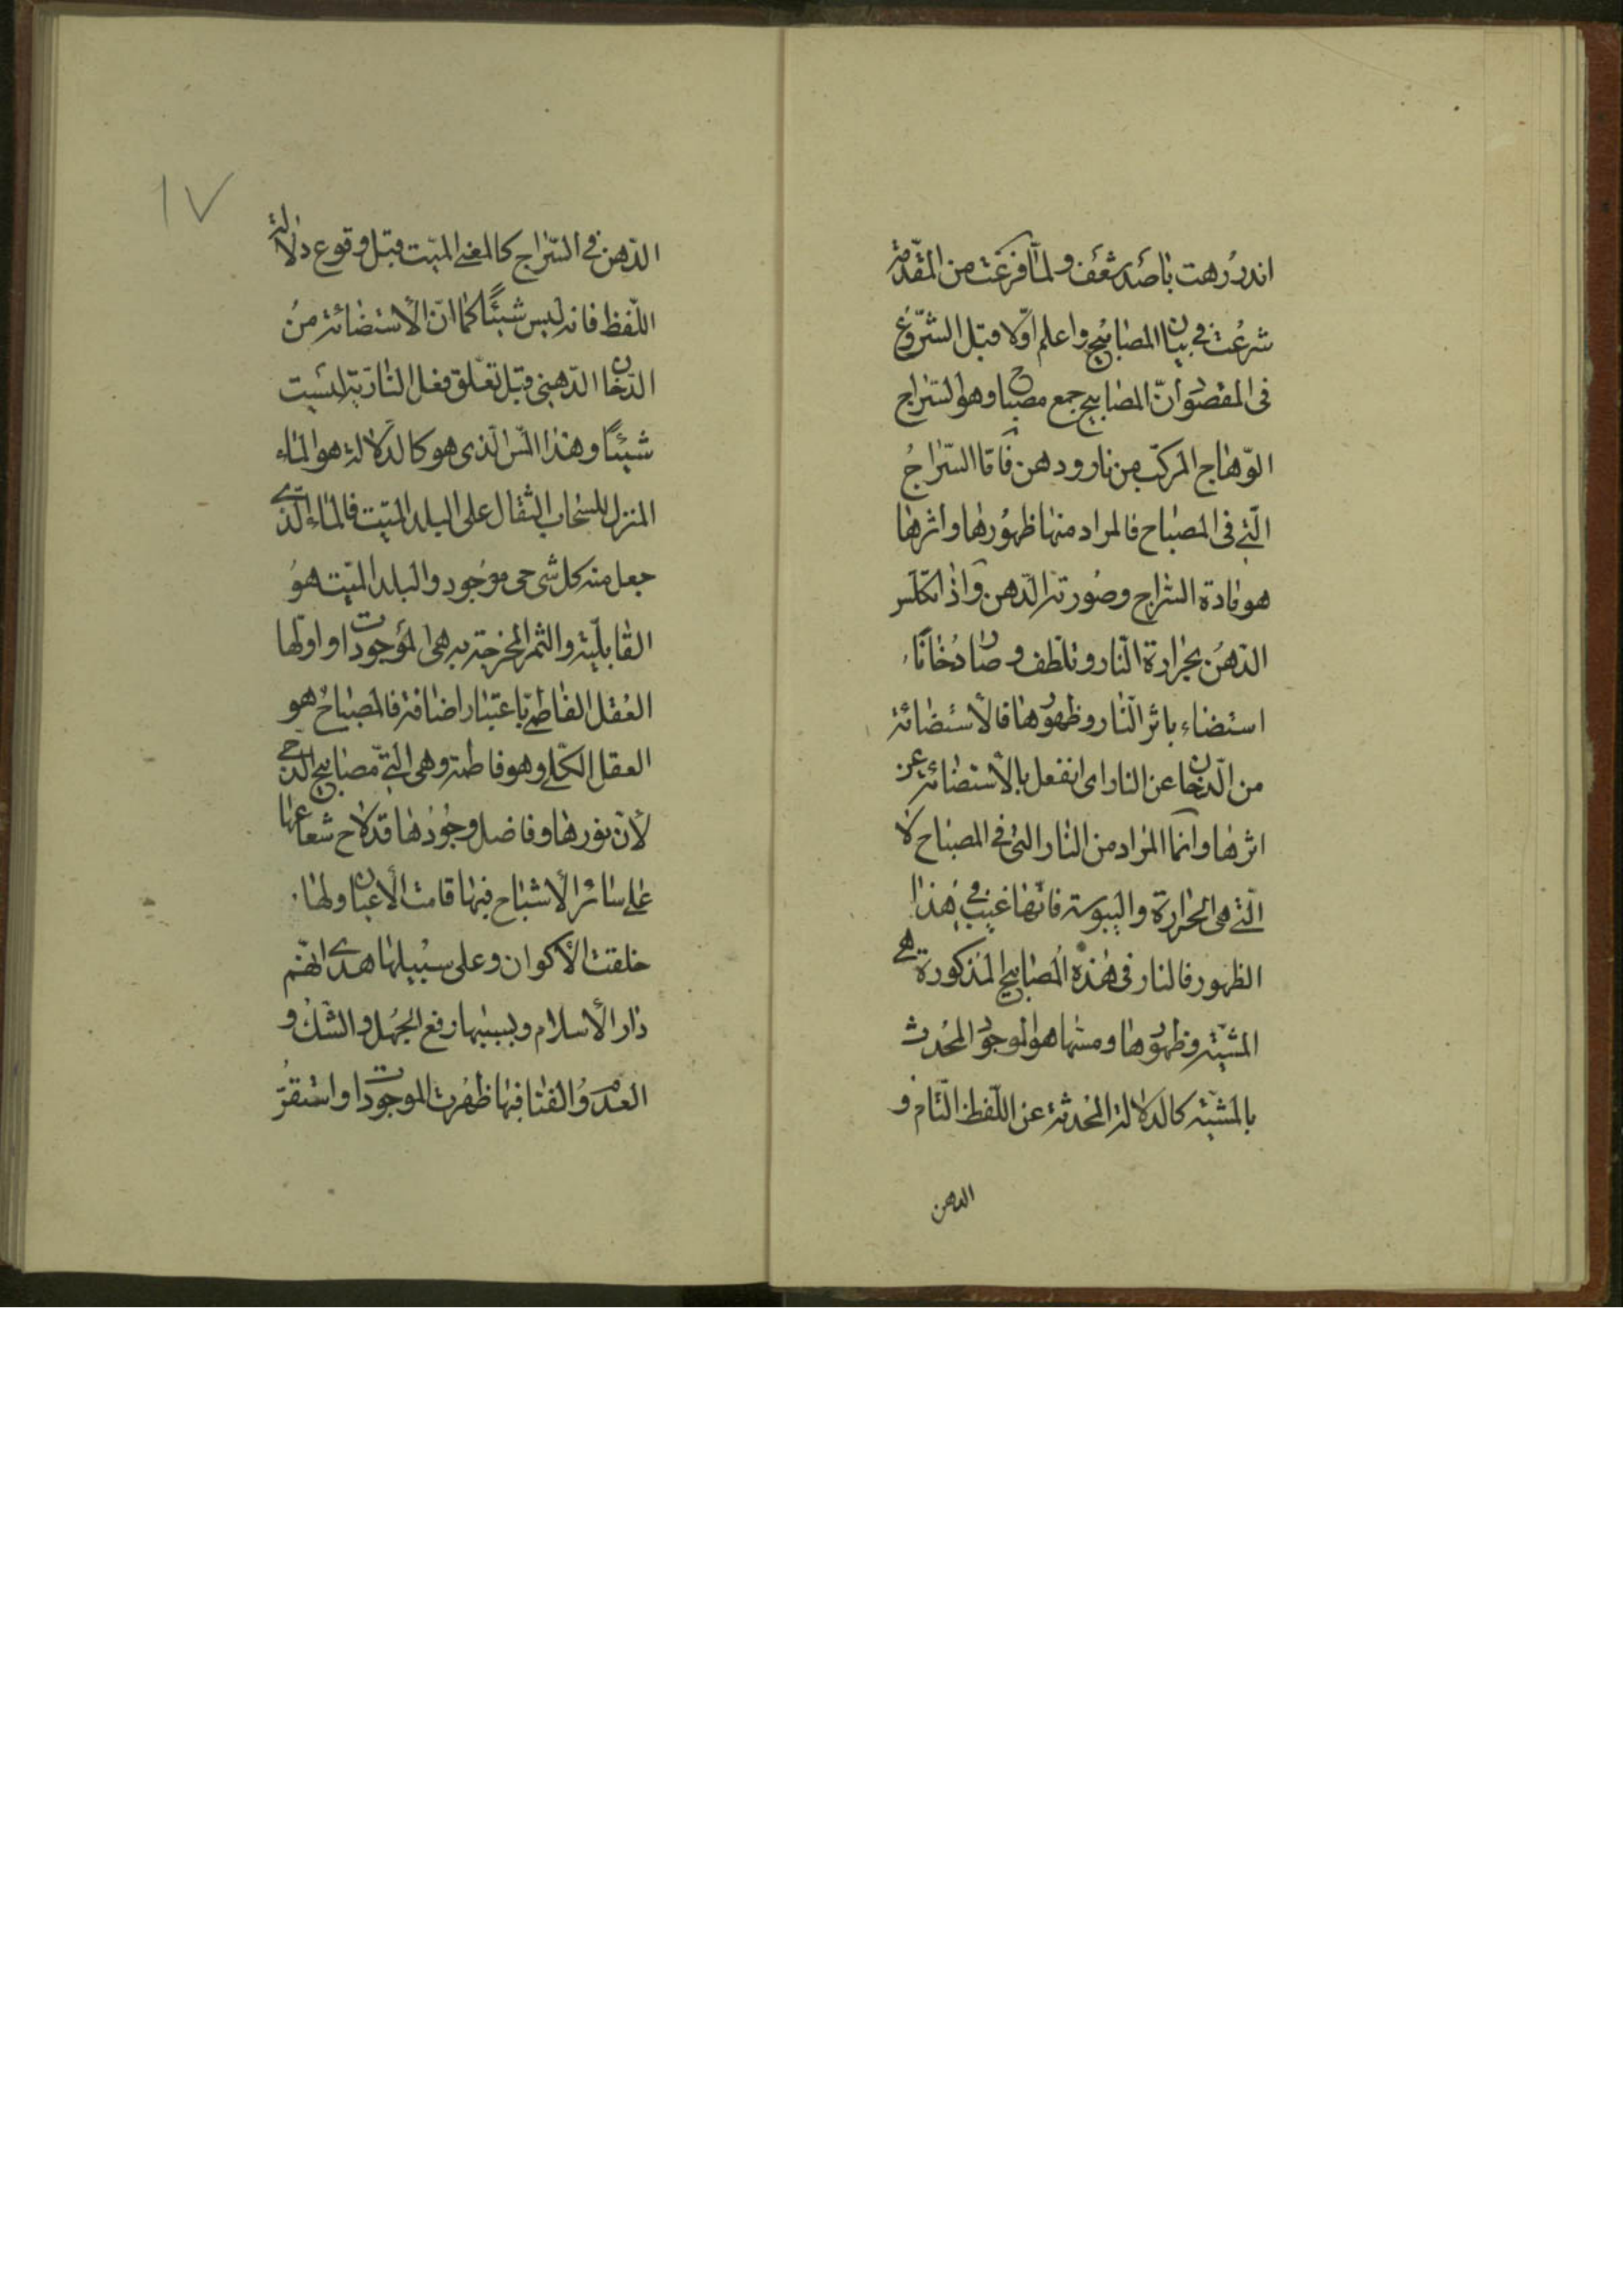 اندر رهت با صد شعف ولمّا فرغت من المقدّمة
شرعت فی بیان المصابیح واعلم اوّلا قبل الشّروع
فی المقصود انّ المصابیح جمع مصباح وهو السّراج
الوّهاج المرکب من نار ودهن فامّا السّراج
الّتی فی المصباح فالمراد منها ظهورها واثرها
هو مادة السّراج وصورته الدّهن واذا تکلّس
الدّهن بحرارة النّار وتلطف وصار دخانًا
استضاء باثر النّار وظهورها فالأستضائة
من الّدخان عن النار ای انفعل بالأستضائة عن
اثرها وانّما المراد من النار التی فی المصباح لا
الّتی هی الحرارة والیبوسة فانّها غیب فی هذا
الظهور فالنار فی هذه المصابیح المذکورة هی
المشیّة وظهورها ومسّها هو الموجود المحدث
بالمشیّة کالدلالة المحدثة عن اللّفظ التّام و
الدهن
١٧
الدّهن فی السّراج کالمعنی المیّت قبل وقوع دلالة
اللّفظ فانه لیس شیئًا کما انّ الأستضائة من
الدّخان الدّهنی قبل تعلّق فعل النار به لیست
شیئًا وهذا المسّ الّذی هو کالدلالة هو الماء
المنزل للسّحاب الثقال علی البلد المیّت فالماء الّذی
جعل منه کل شی حی موجود والبلد المیّت هو
القابلیّة والثمر المخرجة به هی الموجودات واوّلها
العقل الفاطمی باعتبار اضافة فالمصباح هو
العقل الکلّی وهو فاطمة وهی الّتی مصابیح الدجی
لأنّ نورها وفاضل وجودها قد لاح شعاعها
علی سائر الأشباح فبها قامت الأعیان ولها
خلقت الأکوان وعلی سبیلها هدی الهم
دار الأسلام وبسببها رفع الجهل والشّك و
العدم والفنا فبها ظهرت الموجودات واستقرّ